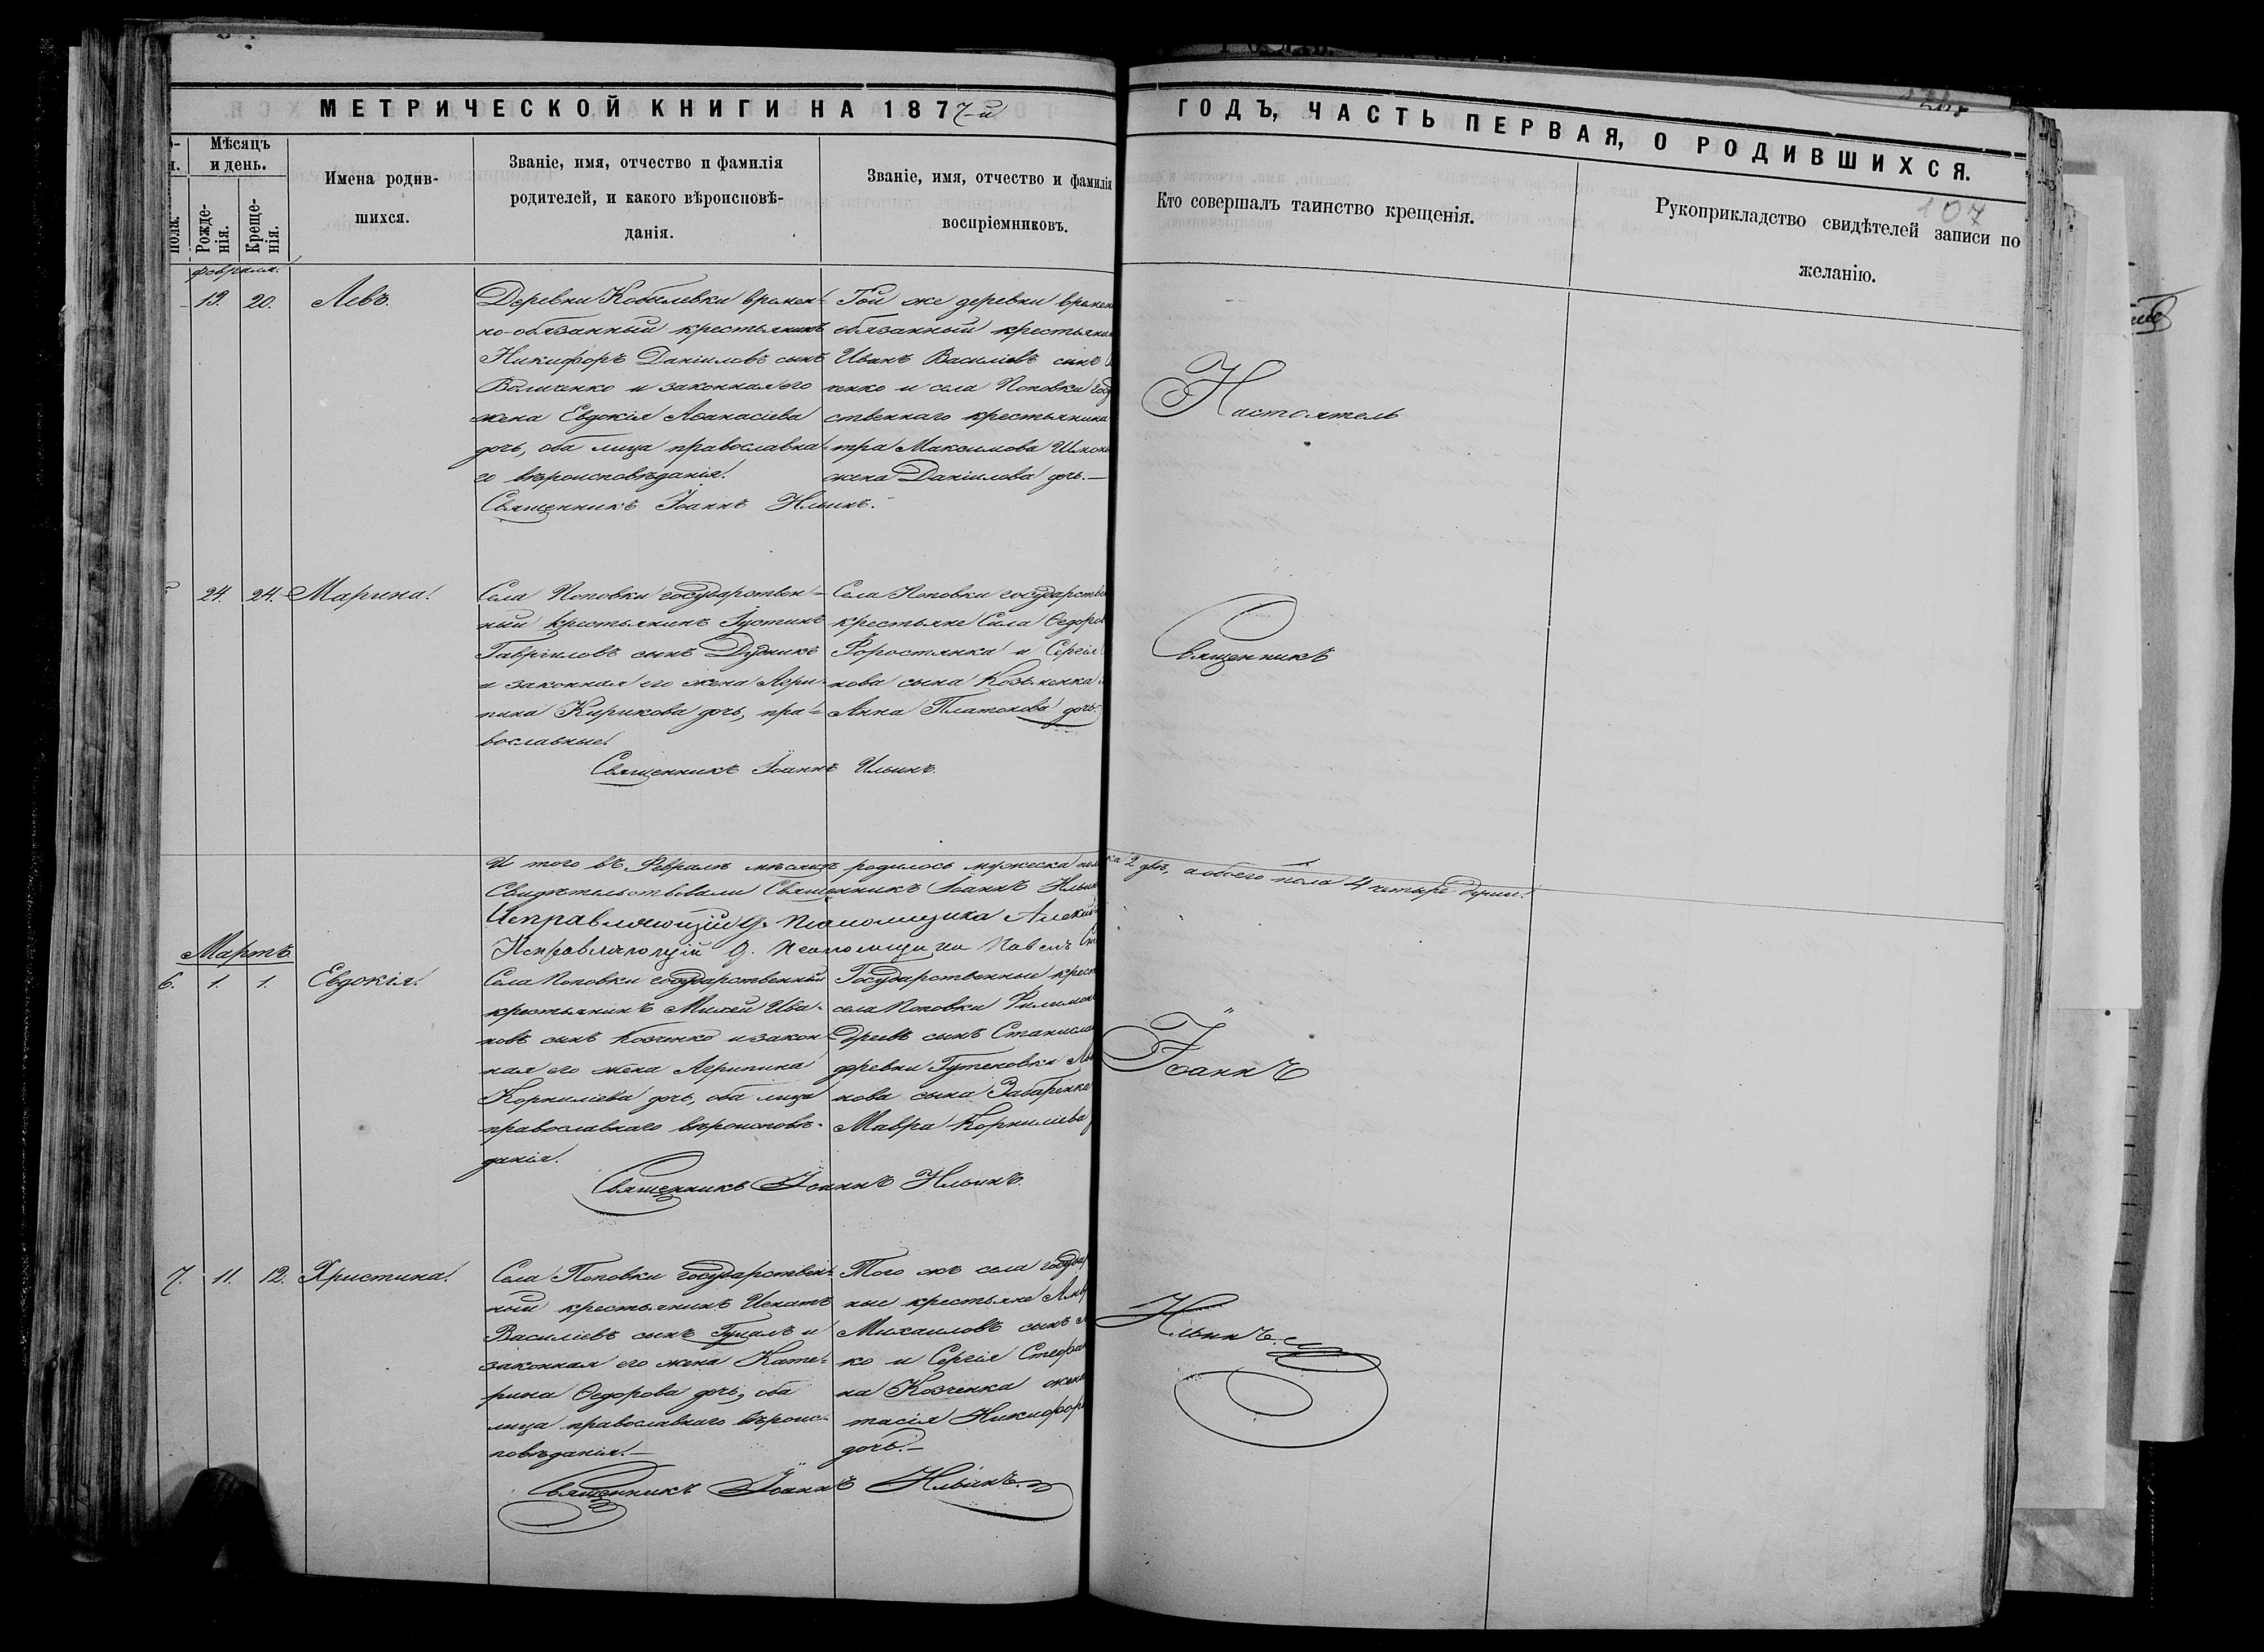 МЕТРИЧЕСКОЙ КНИГИ НА 1877-й
ГОДЪ, ЧАСТЬ ПЕРВАЯ, О РОДИВШИХСЯ.
107
Мѣсяцъ
и день.
Рожде-
нія.
Креще-
нія.
пола.
Имена родив-
шихся.
Званіе, имя, отчество и фамилія
родителей, и какого вѣроисповѣ-
данія.
Званіе, имя, отчество и фамилія
воспріемниковъ.
Кто совершалъ таинство крещенія.
Рукоприкладство свидѣтелей записи по
желанію.
февраля
19. 20. Левъ.
Деревни Кобилевки времен-
но-обязанный крестьянинъ
Никифоръ Даніиловъ сынъ
Величенко и законная его
жена Евдокія Аѳанасіева
дочь, оба лица православна-
го вѣроисповѣданія.
Той же деревни времен
обязанный крестьянин
Иванъ Василіевъ сынъ
ченко и села Поповки гос
ственнаго крестьянина
тра Максимова
жена Даніилова дочь.—
Священникъ Іоаннъ Ильинъ.
24. 24. Марина.
Села Поповки государствен-
ный крестьянинъ Іустинъ
Гавріиловъ сынъ Дудникъ
и законная его жена Агри-
пина Кирикова дочь, пра-
вославные.
Села Поповки государствен
крестьяне Сила Ѳедоров
Форостянка и Сергія
нова сына
Анна Платонова дочь.
Священникъ Іоаннъ Ильинъ.
И того въ Февралѣ мѣсяцѣ родилось мужеска пол ка 2 двѣ, а обоего пола 4 четыре души.
Свидѣтельствовали Священникъ Іоаннъ Ильин
Исправляющій д. псаломщика Алексѣ
Исправляющій д. псаломщика Павелъ
Мартъ
6. 1. 1. Евдокія.
Села Поповки государственный
крестьянинъ Михей Ива-
новъ сынъ Козченко и закон-
ная его жена Агрипина
Корниліева дочь, оба лица
православнаго вѣроисповѣ-
данія.
Государственные крест
села Поповки Филимон
дреевъ сынъ Станисла
деревни Гутеновки
нова сына Забаренка
Мавра Корниліева
Священникъ Іоаннъ Ильинъ.
7. 11. 12. Христина.
Села Поповки государствен-
ный крестьянинъ Игнатъ
Василіевъ сынъ Гупалъ и
законная его жена Кате-
рина Ѳедорова дочь, оба
лица православнаго вѣроис-
повѣданія.—
Того жъ села государ
ные крестьяне
Михаиловъ сынъ
ко и Сергія Стефа
на Козченка жена
тасія Никифор
дочь.—
Священникъ Іоаннъ Ильинъ.
Настоятель
Священникъ
Іоаннъ
Ильинъ.